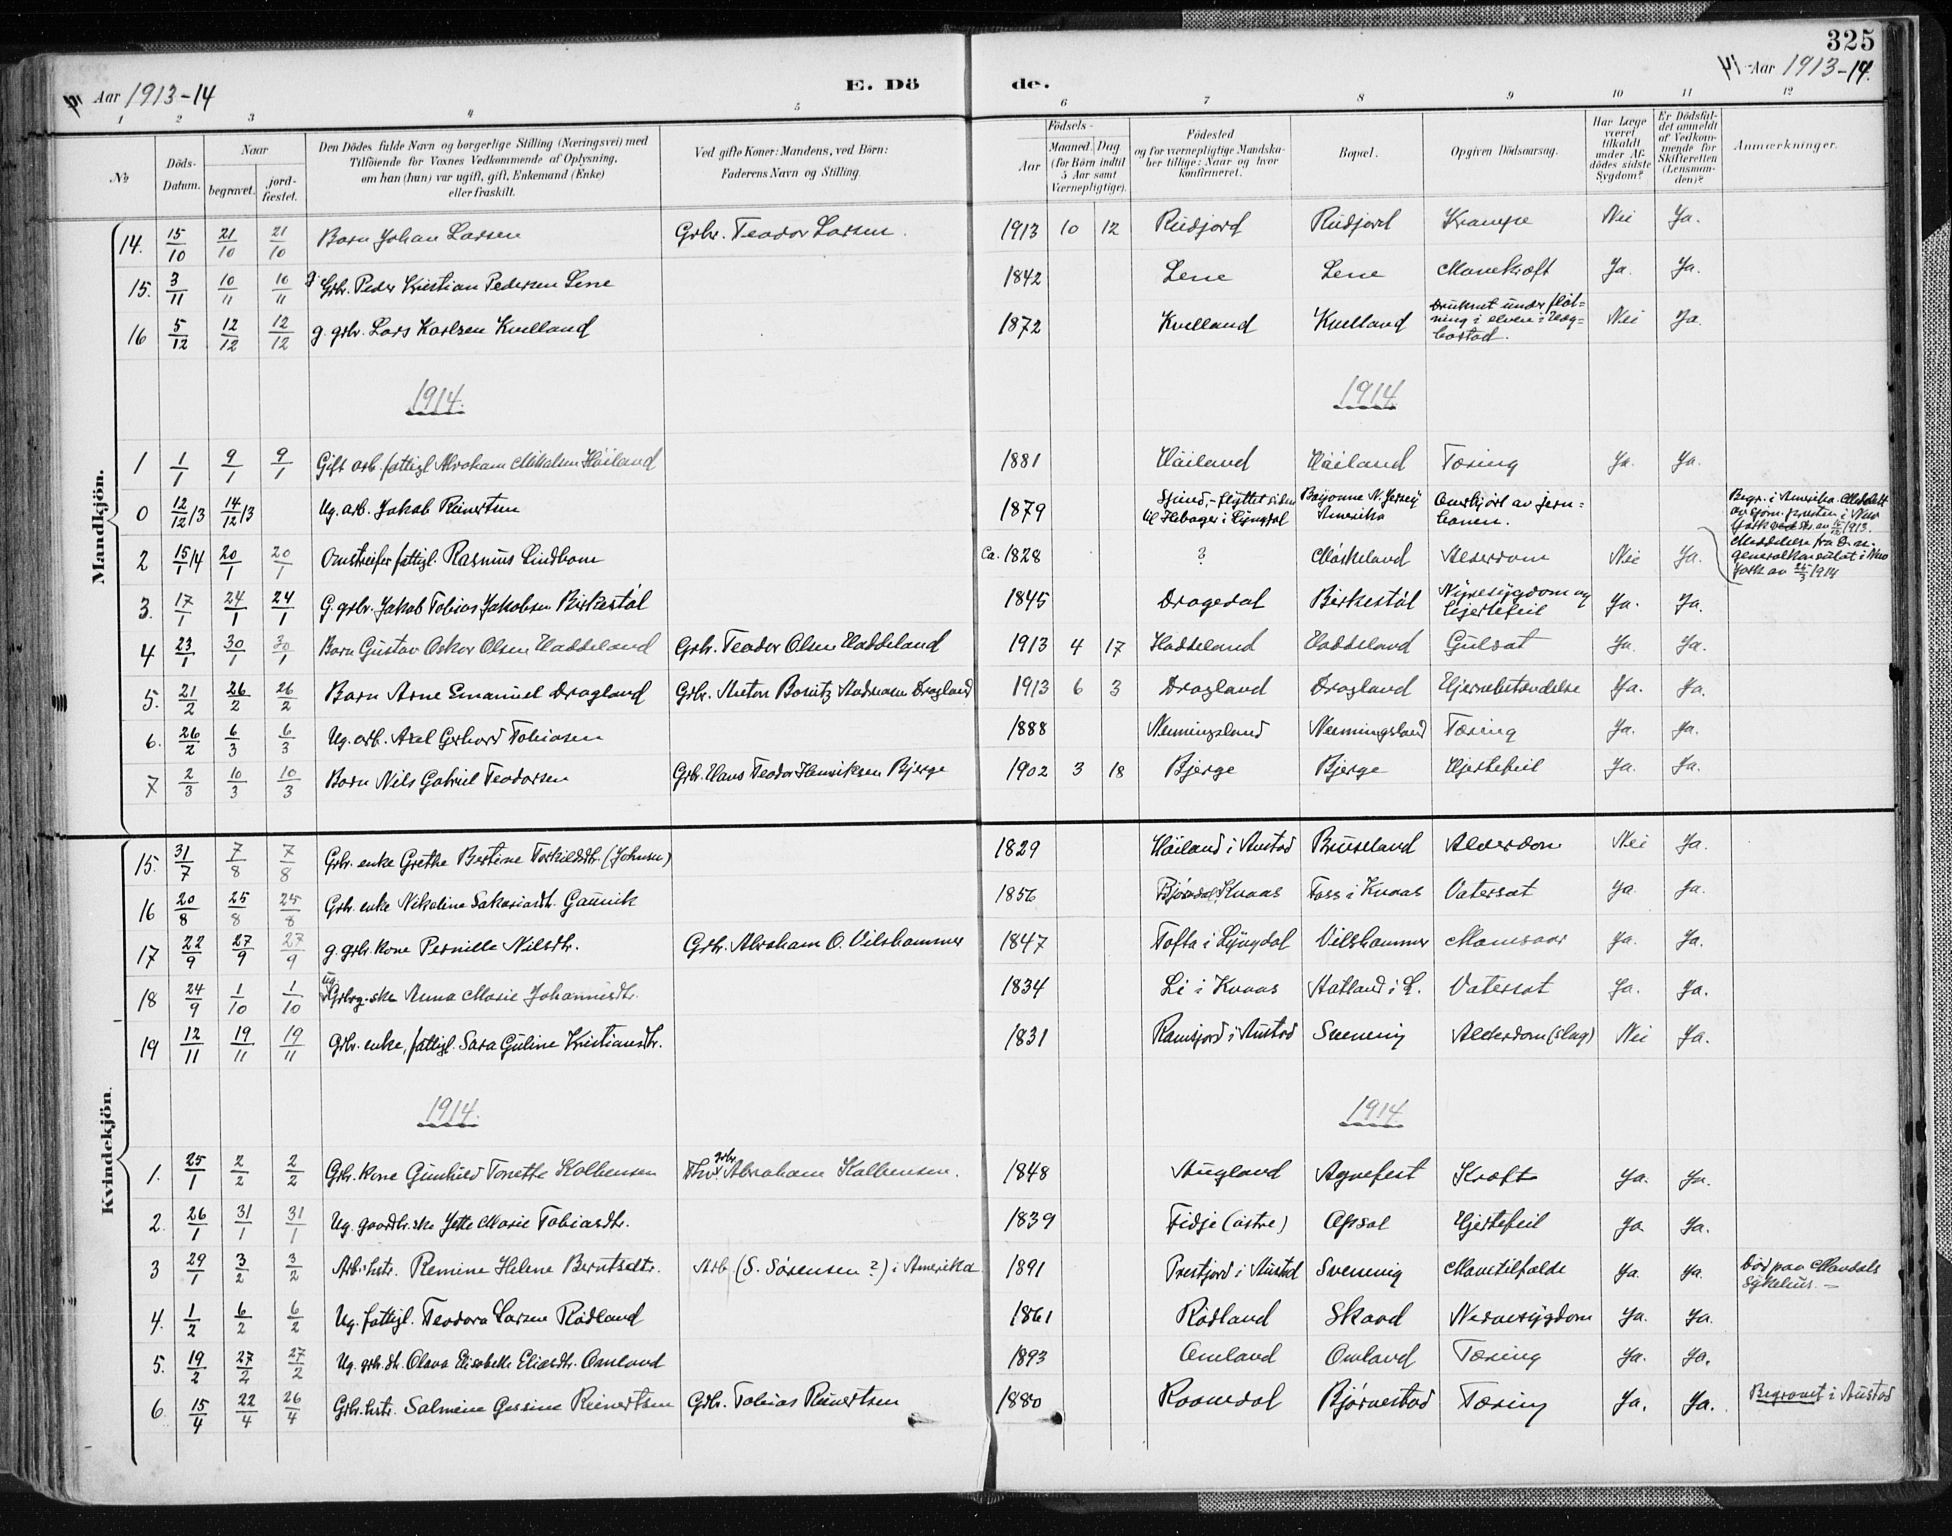 325
Aar 1913-14
E. Döde.
Aar 1913-14.
1 2 3 4 5 6 7 8 9 10 11 12
№
Döds-Datum.
Naar
begravet.
jord-fæstet.
Den Dödes fulde Navn og borgerlige Stilling (Næringsvei) med
Tilföiende for Voxnes Vedkommende af Oplysning,
om han (hun) var ugift, gift, Enkemand (Enke)
eller fraskilt.
Ved gifte Koner: Mandens, ved Börn:
Faderens Navn og Stilling.
Födsels-
Aar
Maaned. Dag
(for Börn indtil
5 Aar samt
Værnepligtige).
Födested
og for værnepligtige Mandska-
ber tillige: Naar og hvor
konfirmeret.
Bopæl.
Opgiven Dödsaarsag.
Har Læge
været
tilkaldt
under Af-
dödes sidste
Sygdom?
Er Dödsfal-
det anmeldt
af Vedkom-
mende for
Skifteretten
(Lensman-
den)?
Anmærkninger.
Mandkjön.
14. 15/10 21/10 21/10 Barn Johan Larsen Grbr. Teodor Larsen. 1913 10 12 Rudjord Rudjord Krampe Nei Ja.
15. 3/11 10/11 10/11 Grbr. Peder Kristian Pedersen Lene 1842 Lene Lene Mavekræft Ja. Ja.
16 5/12 12/12 12/12 g. grbr. Lars Karlsen Kvelland 1872 Kvelland Kvelland Druknet under fløt-
ning i elven i Hæg-
bostad. Nei Ja.
1914. 1914
1 1/1 9/1 9/1 Gift arb. fattigl. Abraham Mikalsen Høiland 1881 Høiland Høiland Tæring Ja. Ja.
0 12/12 13 14/12 13 Ug. arb. Jakob Reinertsen 1879 Spind, - flyttet siden
til Hebager i Lyngdal Bayonne N. Jersey
Amerika Overkjørt av jern-
banen. Begr. i Amerika. Meddelt
av sjøm. presten i New
York 1913.
Meddelelse fra D. n.
generalkonsulat i New
York av 25/3 1914
2 15/1 14 20/1 20/1 Omstreifer fattigl. Rasmus Lindbom Ca. 1828 ? Møskeland Alderdom Nei Ja.
3. 17/1 24/1 24/1 G. grbr. Jakob Tobias Jakobsen Birkestøl 1845 Dragedal Birkestøl Nyresygdom og
hjertefeil Ja. Ja.
4 23/1 30/1 30/1 Barn Gustav Oskar Olsen Haddeland Grbr. Teodor Olsen Haddeland 1913 4 17 Haddeland Haddeland Gulsot Ja. Ja.
5. 21/2 26/2 26/2 Barn Arne Emanuel Dragland Grbr. Anton Boritz Andreasen Dragland 1913 6 3 Dragland Dragland Hjernebetændelse Ja. Ja.
6. 26/2 6/3 6/3 Ug. arb. Axel Gerhard Tobiasen 1888 Nenningsland Nenningsland Tæring Ja. Ja.
7 2/3 10/3 10/3 Barn Nils Gabriel Teodorsen Grbr. Hans Teodor Henriksen Bjerge 1902 3 18 Bjerge Bjerge Hjertefeil Ja. Ja.
Kvindekjön.
15. 31/7 7/8 7/8 Grbr. enke Grethe Bertine Torkildsdtr. (Johnsen) 1829 Høiland i Austad Bruseland Alderdom Nei Ja.
16 20/8 25/8 25/8 Grbr. enke Nikoline Sakariasdtr. Gaunik 1856 Bjørndal, Kvaas Foss i Kvaas Vatersot Ja. Ja.
17 22/9 27/9 27/9 g. grbr. kone Pernille Nilsdtr. Grbr. Abraham O. Vilshammer 1847 Tofta i Lyngdal Vilshammer Mavesaar Ja. Ja.
18 24/9 1/10 1/10 ug. Anna Marie Johannesdtr. 1834 Li i Kvaas Aatland i L. Vatersot Ja. Ja.
19 12/11 19/11 19/11 Grbr. enke, fattigl. Sara Guline Kristiansdtr. 1831 Ramsfjord i Austad Svennevig Alderdom (slag) Nei Ja.
1914. 1914
1. 25/1 2/2 2/2 Grbr. kone Gunhild Tonette Kolbensen grbr. Abraham Kolbensen. 1848 Augland Agnefest Kræft Ja. Ja.
2. 26/1 31/1 31/1 Ug. gaardbr.ske Jette Marie Tobiasdtr. 1839 Fidje (østre) Opsal Hjertefeil Ja Ja.
3 29/1 3/2 3/2 Arb.hstr. Remine Helene Berntsdtr. Arb. (S. Sørensen?) i Amerika 1891 Prestfjord i Austad Svennevig Mavetilfælde Ja. Ja. Død paa Mandals
sykehus. -
4. 1/2 6/2 6/2 Ug. fattigl. Teodora Larsen Rødland 1861 Rødland Skaad Nervesygdom Ja. Ja.
5. 19/2 27/2 27/2 Ug. grbr. dtr. Olava Elisabeth Eliasdtr. Omland 1893 Omland Omland Tæring Ja. Ja.
6. 15/4 22/4 26/4 Grbr. hstr. Salmine Gessine Reinertsen Grbr. Tobias Reinertsen 1880 Rosnedal Bjørnestad Tæring Ja. Ja. Begravet i Austad